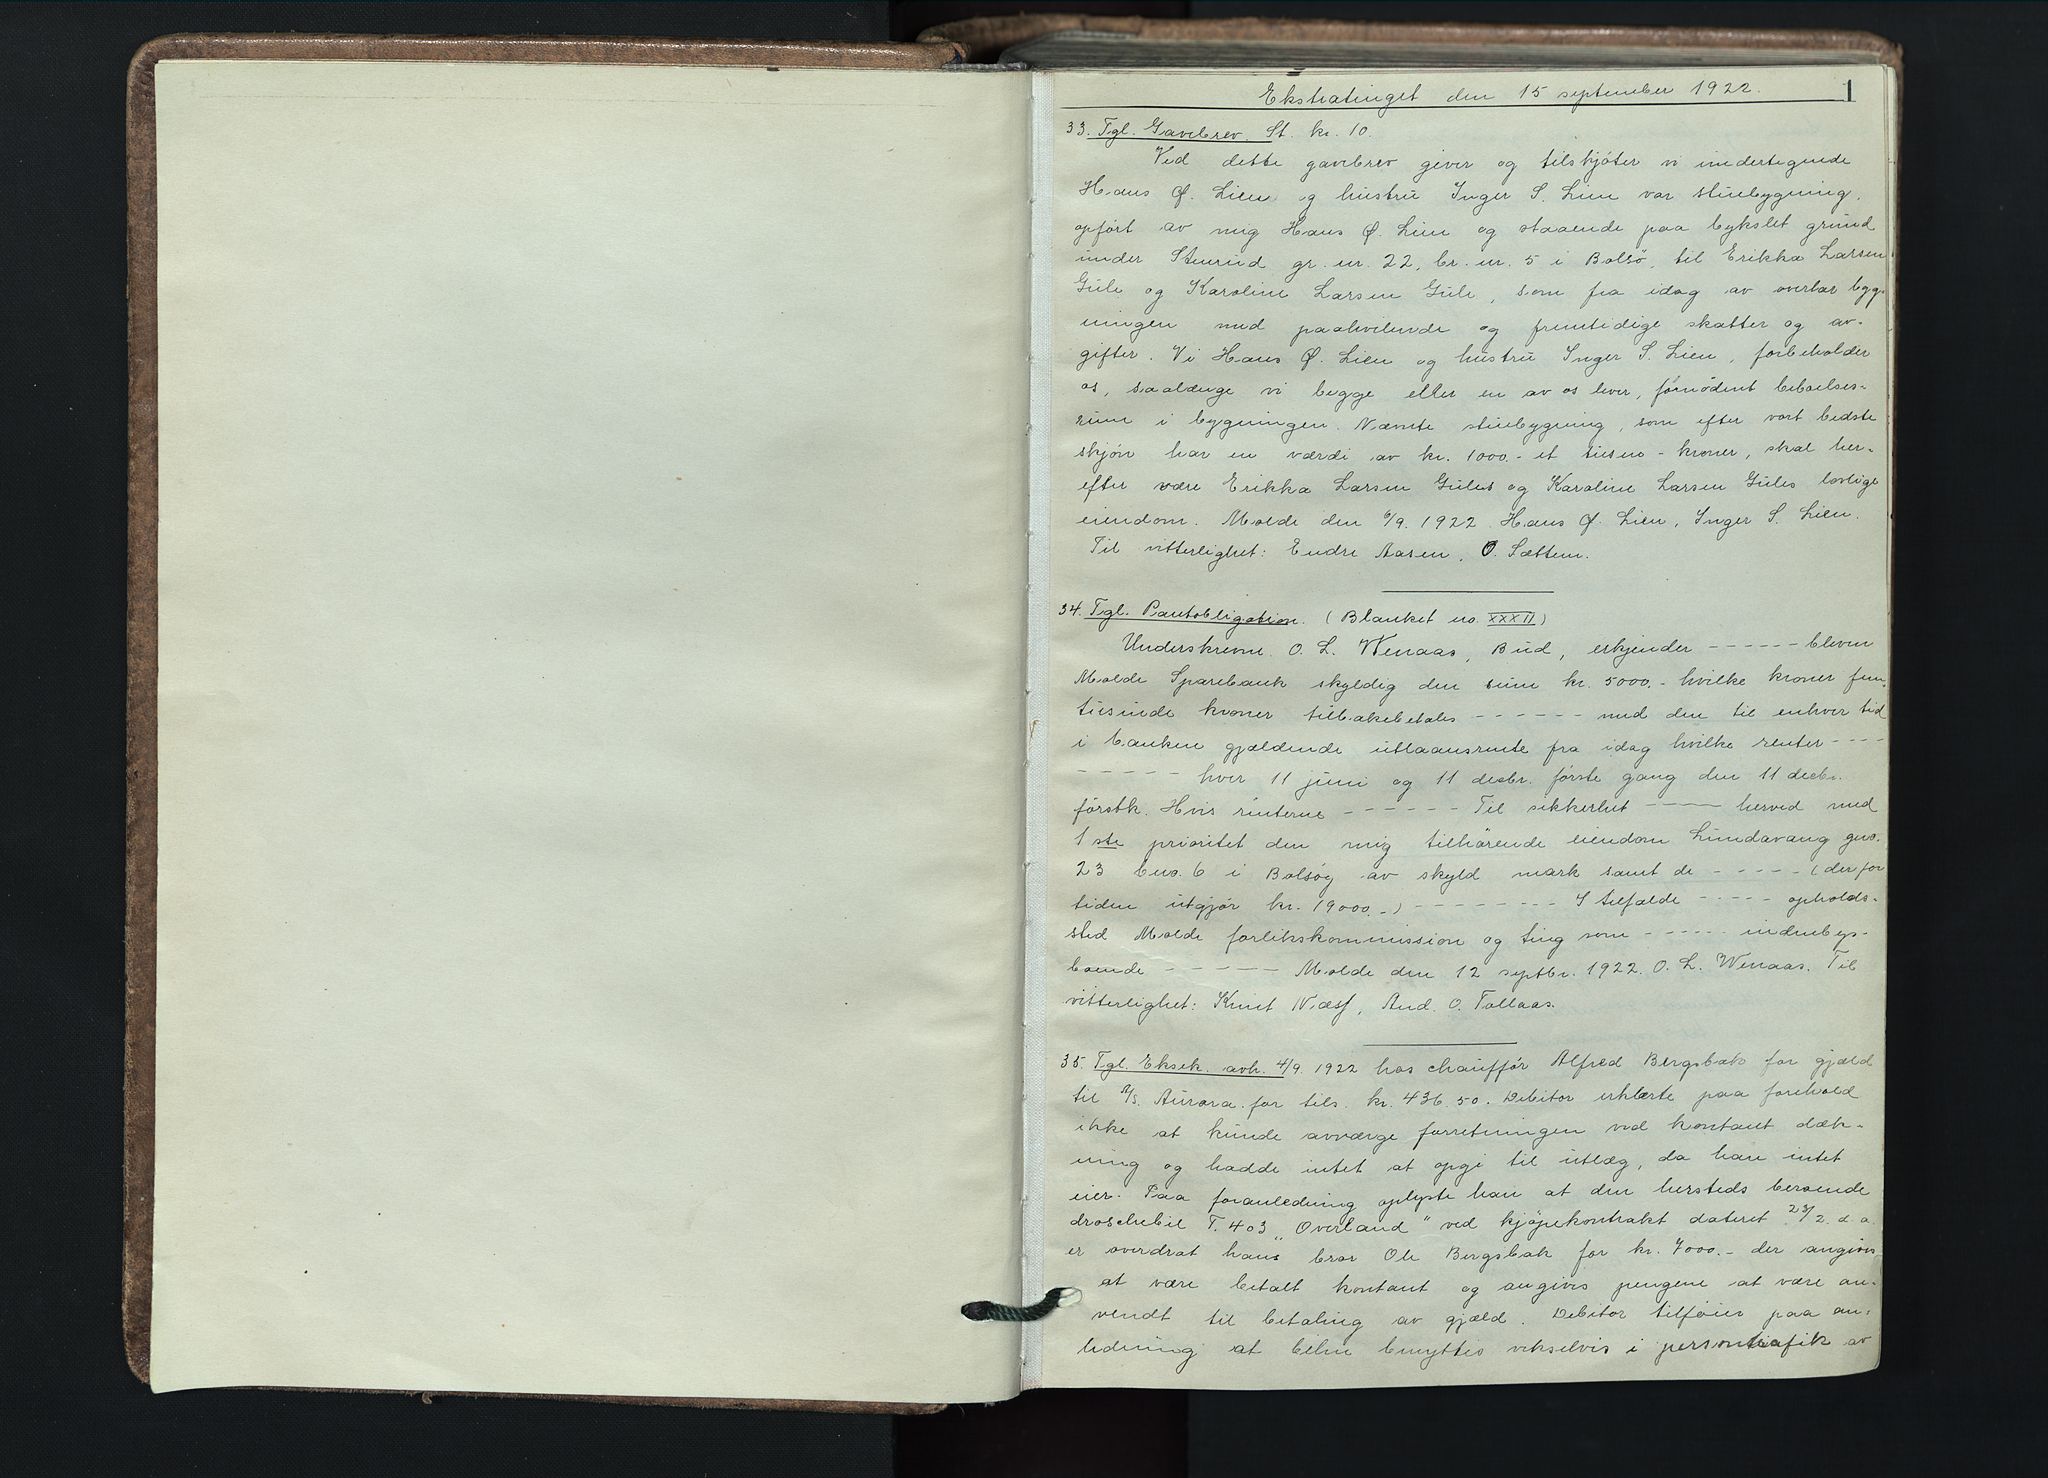 Ekstratinget den 15 september 1922. 1
33. Tgl. Gavebrev. St. kr. 10.
Ved dette gavebrev giver og tilskjøter vi undertegnede
Hans Ø. Lien og hustru Inger S. Lien vor stuebygning,
opført av mig Hans Ø. Lien og staaende paa bykslet grund
under Stenrud gr. nr. 22, br. nr. 5 i Bolsø, til Erikka Larsen
Gule og Karoline Larsen Gule, som fra idag av overtar byg-
ningen med paahvilende og fremtidige skatter og av-
gifter. Vi Hans Ø. Lien og hustru Inger S. Lien, forbeholder
os, saalænge vi begge eller en av os lever, fornødent beboelses-
rum i bygningen. Nævnte stuebygning, som efter vort bedste
skjøn har en værdi av kr. 1000.- et tusen - kroner, skal her-
efter være Erikka Larsen Gules og Karoline Larsen Gules lovlige
eiendom. Molde den 6/9. 1922. Hans Ø. Lien, Inger S. Lien.
Til vitterlighet: Endre Aasen, O. Sættem.
34. Tgl. Pantobligation. (Blanket no. XXXII)
Underskrevne O. L. Wenaas, Bud, erkjender - - - - - - bleven
Molde Sparebank skyldig den sum kr. 5000.- hvilke kroner fem
tusinde kroner tilbakebetales - - - - - - med den til enhver tid
i banken gjældende utlaansrente fra idag hvilke renter - - - -
- - - - - hver 11 juni og 11 decbr. første gang den 11 decbr.
førstk. Hvis renterne - - - - - - Til sikkerhet - - - - herved med
1 ste prioritet den mig tilhørende eiendom Lundavang gno.
23 bno. 6 i Bolsøy av skyld mark samt de - - - - - (der for
tiden utgjør kr. 19000.-) - - - - - - - - I tilfælde - - - - - opholds-
sted Molde forlikskommission og ting som - - - - - indenbys-
boende - - - - - - Molde den 12 septbr. 1922. O. L. Wenaas. Til
vitterlighet: Knut Næss, And. O. Tollaas.
35. Tgl. Eksek. avh. 4/9. 1922 hos chauffør Alfred Bergsbak for gjæld
til A/S. Aurora for tils. kr. 436.50. Debitor erklærte paa forehold
ikke at kunde avværge forretningen ved kontant dæk-
ning og hadde intet at opgi til utlæg, da han intet
eier. Paa foranledning oplyste han at den hersteds beroende
droschebil T. 403 „Overland" ved kjøpekontrakt dateret 23/2. d. a.
er overdrat hans bror Ole Bergsbak for kr. 7000.- der angives
at være betalt kontant og angives pengene at være an-
vendt til betaling av gjæld. Debitor tilføier paa an-
ledning at bilen benyttes vekselvis i persontrafik av